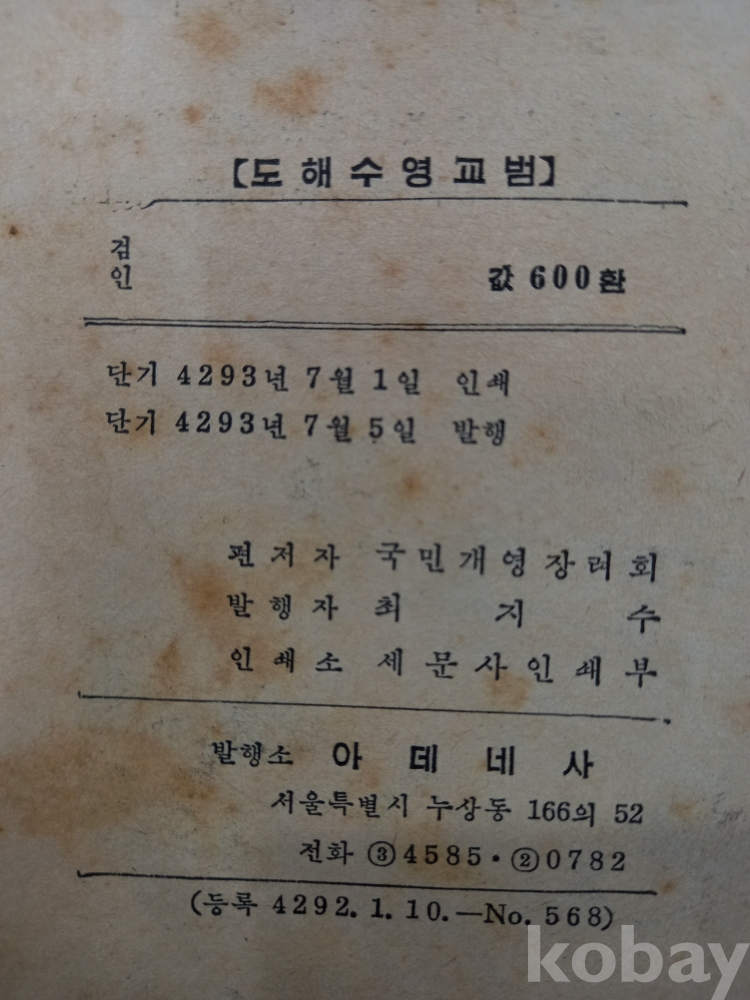 【도해수영교범】
검인
값 600환
단기 4293년 7월 1일 인쇄
단기 4293년 7월 5일 발행
편저자 국민개영장려회
발행자 최지수
인쇄소 세문사인쇄부
발행소 아데네사
서울특별시 누상동 166의 52
전화 ③4585·②0782
(등록 4292. 1. 10.—No. 568)
kobay